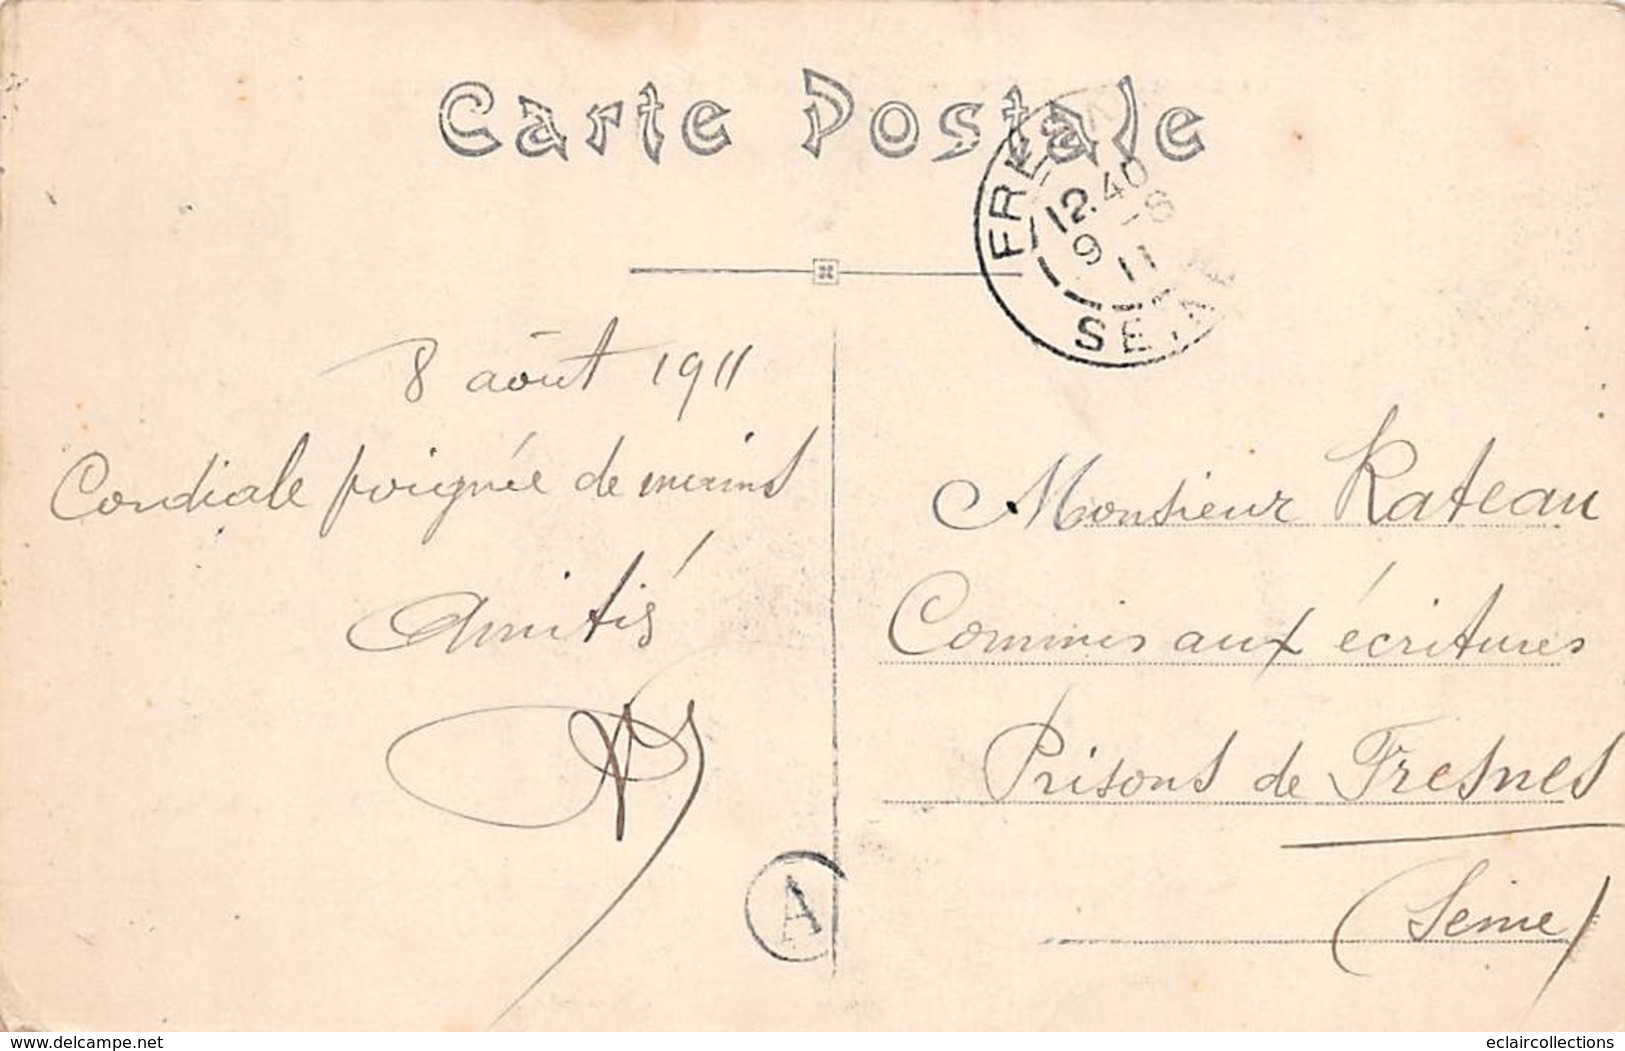 Carte Postale
FRESNES
12.40
9 -8
11
SEINE
8 août 1911
Cordiale poignée de mains
Amitiés
A
Monsieur Rateau
Commis aux écritures
Prisons de Fresnes
(Seine)
www.delcampe.net
eclaircollections